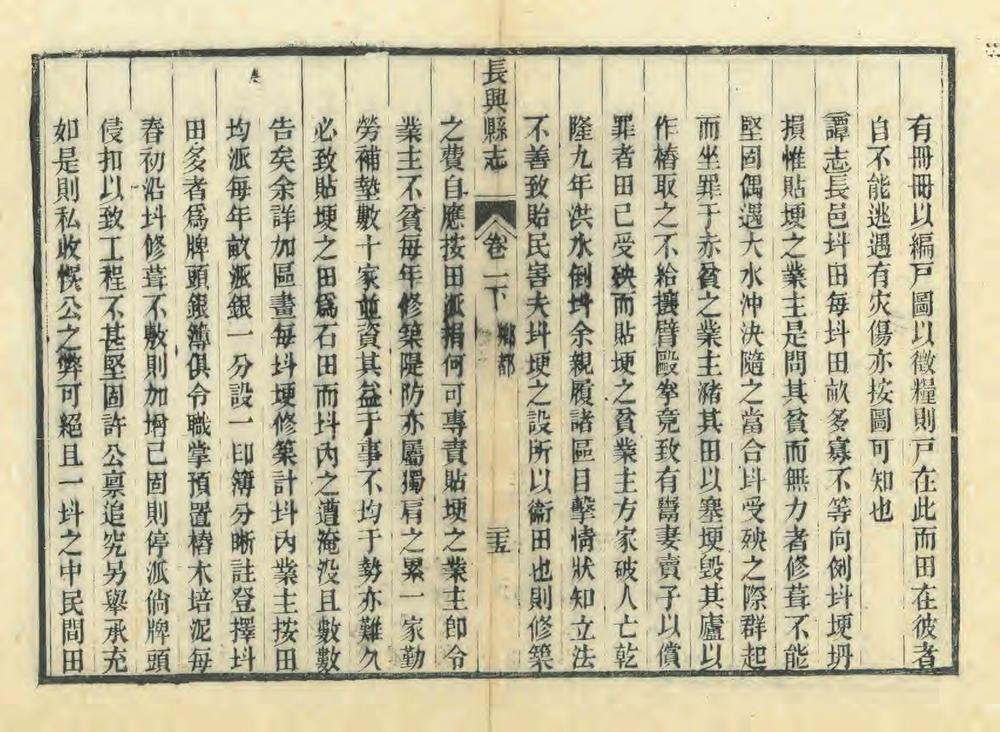 有冊冊以編戸圖以徵糧則戸在此而田在彼者
自不能逃遇有灾傷亦按圖可知也
譚志長邑圩田每圩田畝多寡不等向例圩埂坍
損惟貼埂之業主是問其貧而無力者修葺不能
堅固偶遇大水沖決隨之當合圩受殃之際群起
而坐罪于赤貧之業主瀦其田以塞埂毀其廬以
作樁取之不給攘臂毆拳竟致有鬻妻賣子以償
罪者田已受殃而貼埂之貧業主方家破人亡乾
隆九年洪水倒圩余親履諸區目擊情狀知立法
不善致貽民害夫圩埂之設所以衞田也則修築
長興縣志
卷一下
鄉都
三十五
之費自應按田派捐何可專責貼埂之業主卽令
業主不貧每年修築隄防亦屬獨肩之累一家勤
勞補墊數十家並資其益于事不均于勢亦難久
必致貼埂之田爲石田而圩內之遭淹沒且數數
告矣余詳加區畫每圩埂修築計圩內業主按田
均派每年畝派銀一分設一印簿分晰註登擇圩
田多者爲牌頭銀簿俱令職掌預置樁木培泥每
春初沿圩修葺不敷則加增已固則停派倘牌頭
侵扣以致工程不甚堅固許公禀追究另舉承充
如是則私收悞公之弊可絕且一圩之中民間田